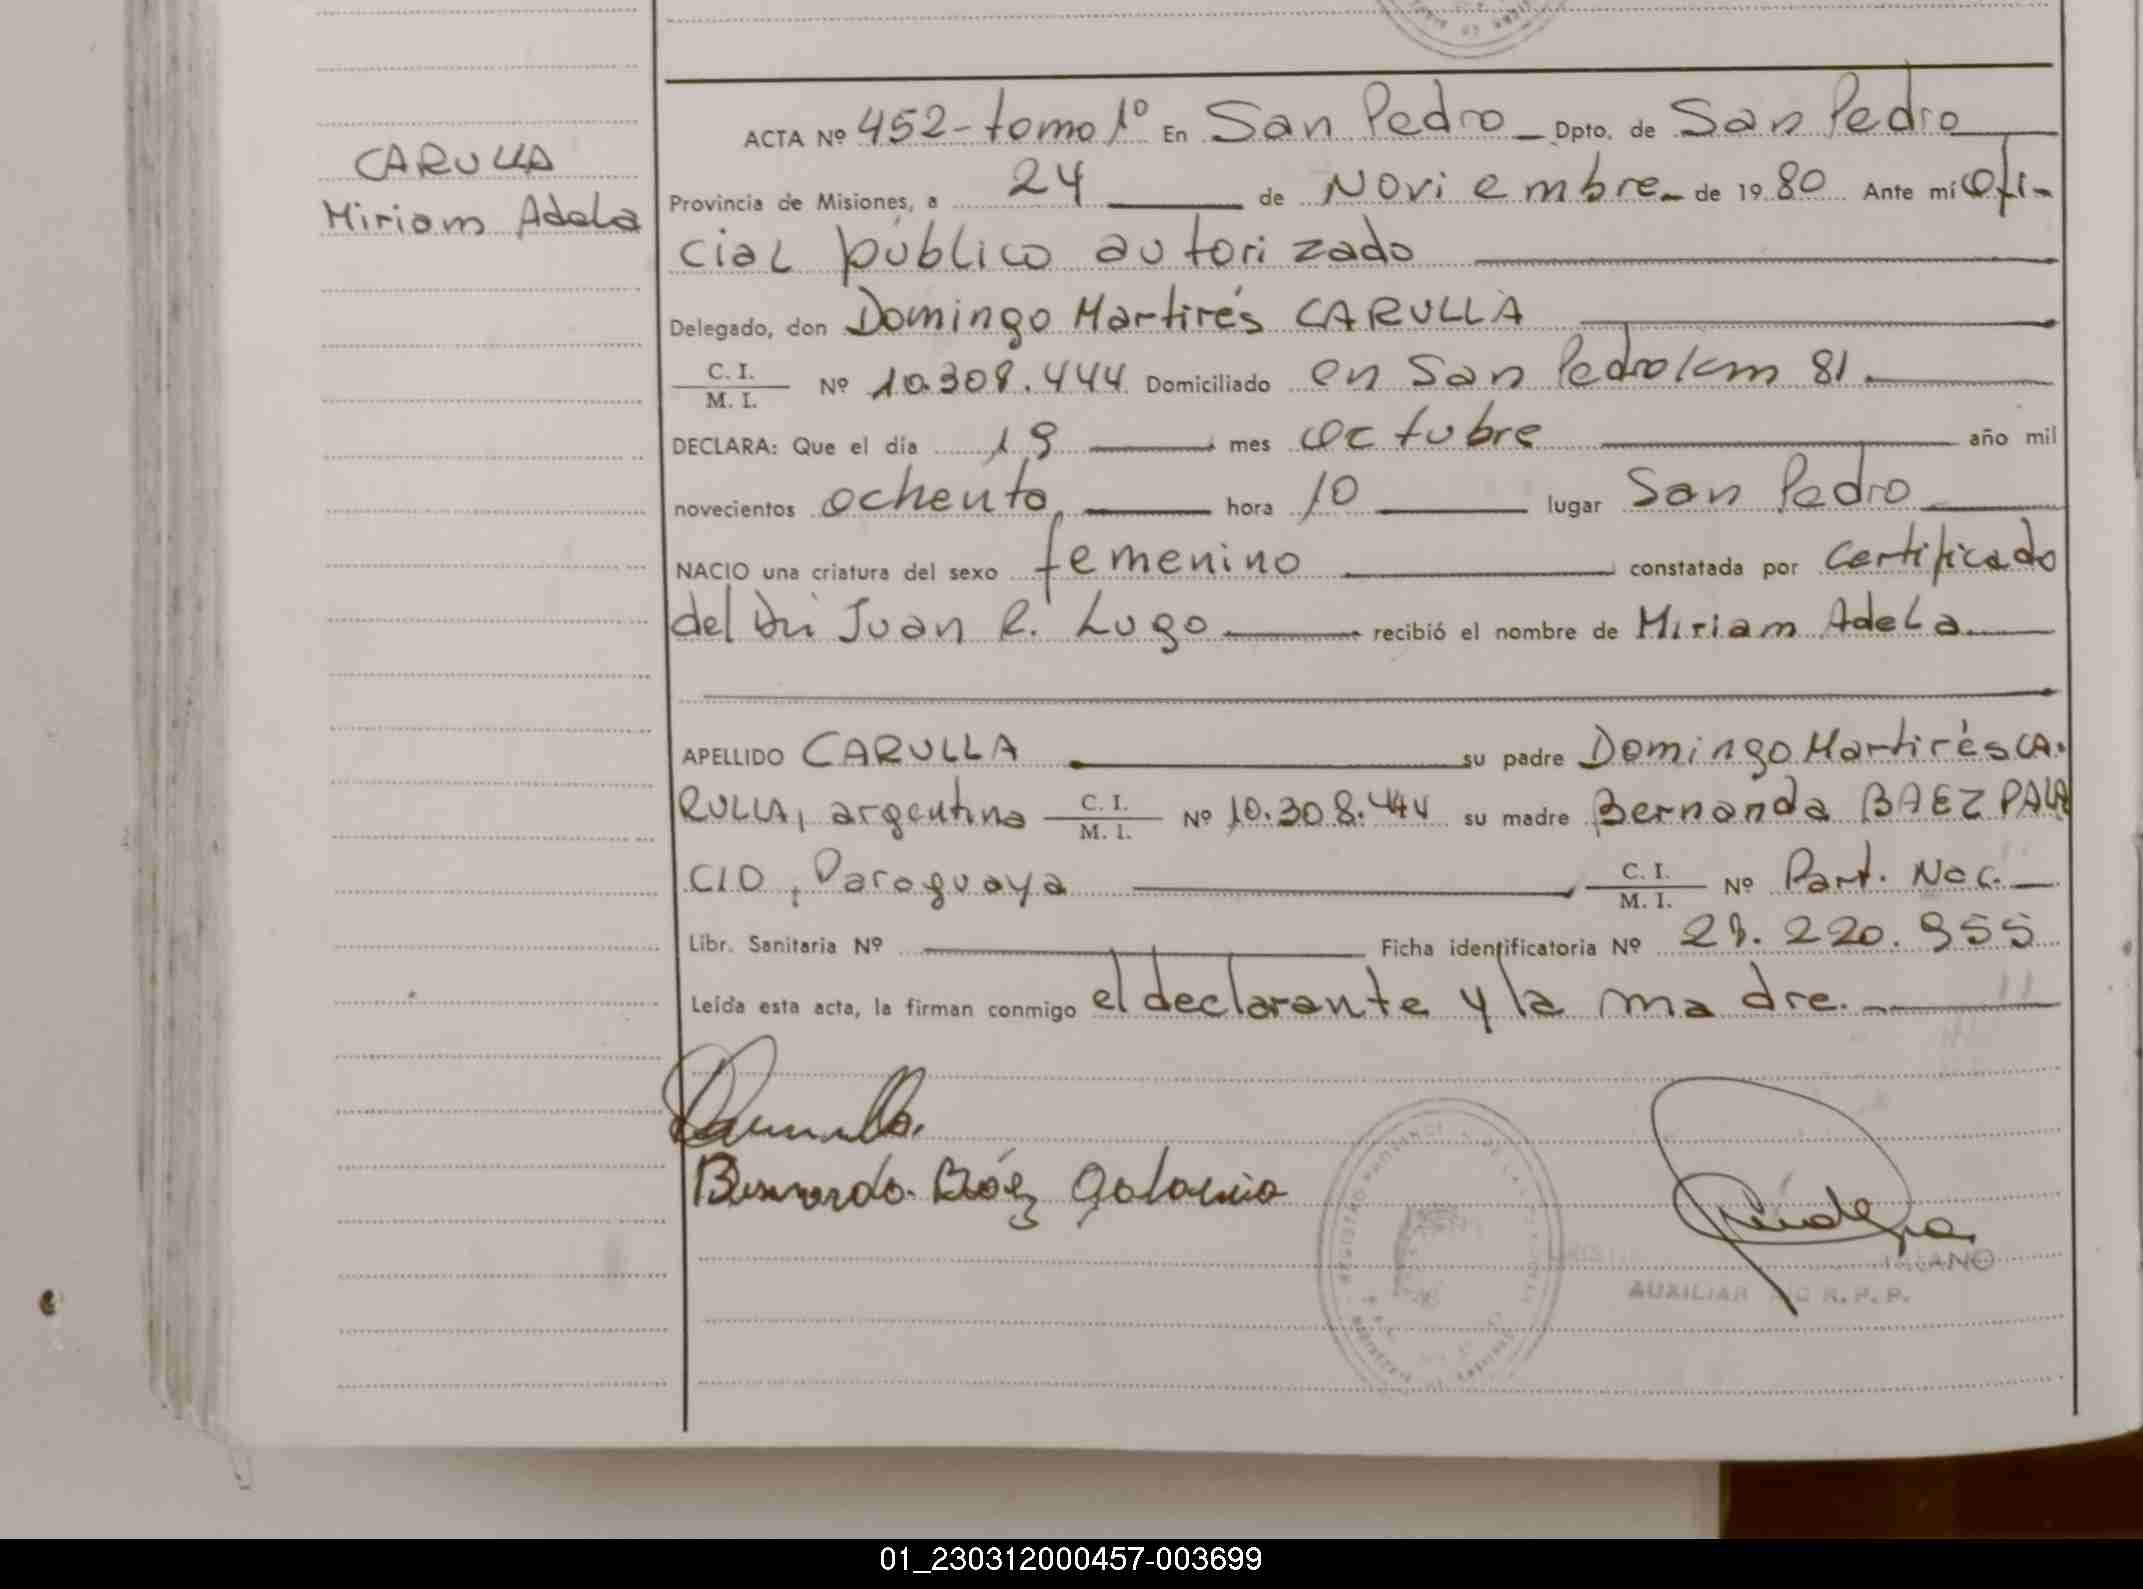 CARULLA
Miriam Adela
ACTA Nº 452-tomo 1º En San Pedro Dpto. de San Pedro
Provincia de Misiones, a 24 de Noviembre de 1980 Ante mí ofi-
cial público autorizado
Delegado, don Domingo Martirés CARULLA
C. I.
M. I. Nº 10.308.444 Domiciliado en San Pedro km 81
DECLARA: Que el día 19 mes Octubre año mil
novecientos ochenta, hora 10 lugar San Pedro
NACIO una criatura del sexo femenino constatada por certificado
del Juan R. Lugo recibió el nombre de Miriam Adela
APELLIDO CARULLA su padre Domingo Martirés CA-
RULLA, argentino C. I. M. I. Nº 10.308.444 su madre Bernarda BAEZ PALA
CIO, Paraguaya C. I. M. I. Nº Part. Nac.
Libr. Sanitaria Nº Ficha identificatoria Nº 28.220.955
Leída esta acta, la firman conmigo el declarante y la madre.
Bernarda Báez Palacio
AUXILIAR R. P. P.
01_230312000457-003699